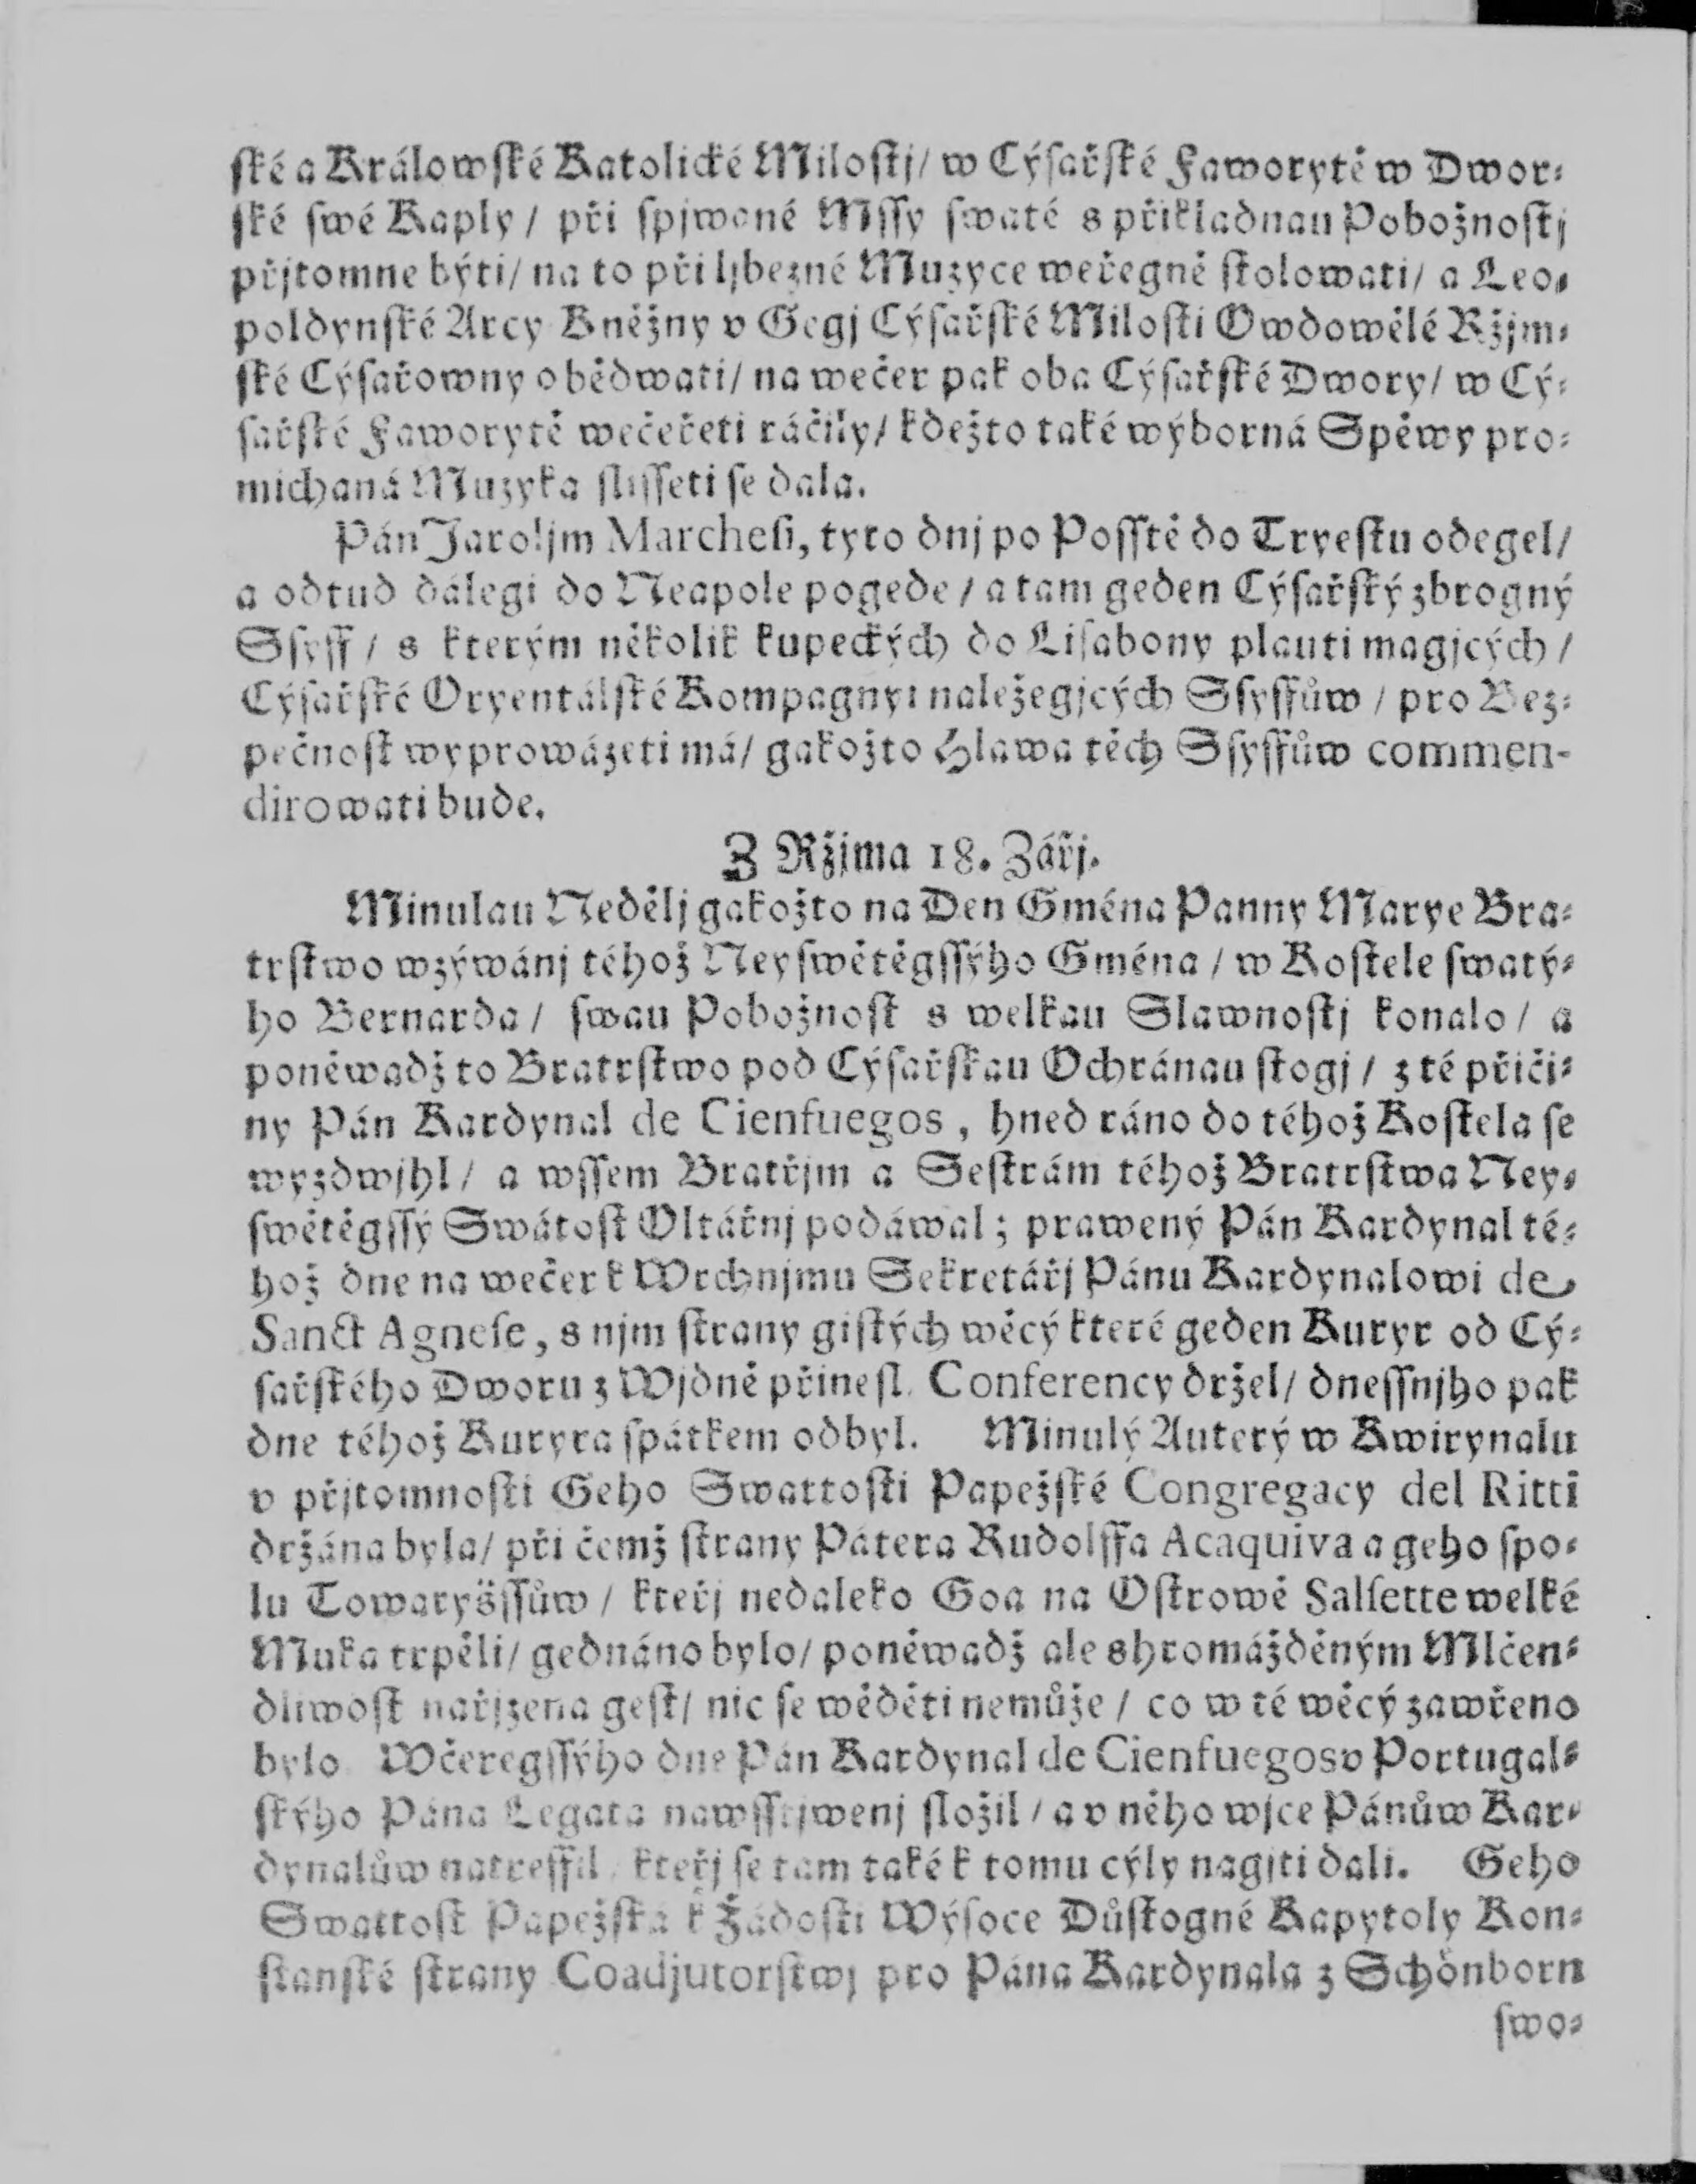 ſké a Králowſké Katolické Miloſtj/ w Cýſařſké Faworytě w Dwor⸗
ſké ſwé Kaply / při ſpjwané Mſſy ſwaté s přikladnau Pobožnoſtj
přjtomne býti/ na to při ljbezné Muzyce weřegně ſtolowati/ a Leo⸗
poldynſké Arcy Kněžny v Gegj Cýſařſké Miloſti Owdowělé Ržjm⸗
ſké Cýſařowny obědwati/ na wečer pak oba Cýſařſké Dwory/ w Cý⸗
ſařſké Faworytě wečeřeti ráčily/ kdežto také wýborná Spěwy pro⸗
michaná Muzyka ſliſſeti ſe dala.
Pán Jaroljm Marcheſi, tyto dnj po Poſſtě do Tryeſtu odegel/
a odtud dálegi do Neapole pogede / a tam geden Cýſařſký zbrogný
Sſyff / s kterým několik kupeckých do Liſabony plauti magjcých /
Cýſařſké Oryentálſké Kompagnyi naležegjcých Sſyffůw / pro Bez⸗
pečnoſt wyprowázeti má/ gakožto Hlawa těch Sſyffůw commen-
dirowati bude.
Z Ržjma 18. Zářj.
Minulau Nedělj gakožto na Den Gména Panny Marye Bra⸗
trſtwo wzýwánj téhož Neyſwětěgſſýho Gména / w Koſtele ſwatý⸗
ho Bernarda / ſwau Pobožnoſt s welkau Slawnoſtj konalo / a
poněwadž to Bratrſtwo pod Cýſařſkau Ochránau ſtogj / z té přiči⸗
ny Pán Kardynal de Cienfuegos , hned ráno do téhož Koſtela ſe
wyzdwjhl / a wſſem Bratřjm a Seſtrám téhož Bratrſtwa Ney⸗
ſwětěgſſý Swátoſt Oltářnj podáwal ; prawený Pán Kardynal té⸗
hož dne na wečer k Wrchnjmu Sekretářj Pánu Kardynalowi de
Sanct Agneſe, s njm ſtrany giſtých wěcý které geden Kuryr od Cý⸗
ſařſkého Dworu z Wjdně přineſl. Conferency držel/ dneſſnjho pak
dne téhož Kuryra ſpátkem odbyl. Minulý Auterý w Kwirynalu
v přjtomnoſti Geho Swattoſti Papežſké Congregacy del Ritti
držána byla/ při čemž ſtrany Pátera Rudolffa Acaquiva a geho ſpo⸗
lu Towaryšſſůw / kteřj nedaleko Goa na Oſtrowě Salſette welké
Muka trpěli/ gednáno bylo/ poněwadž ale shromážděným Mlčen⸗
dliwoſt nařjzena geſt/ nic ſe wěděti nemůže / co w té wěcý zawřeno
bylo Wčeregſſýho dne Pán Kardynal de Cienfuegos v Portugal⸗
ſkýho Pána Legata nawſſtjwenj ſložil / a v něho wjce Pánůw Kar⸗
dynalůw natreffil kteřj ſe tam také k tomu cýly nagjti dali. Geho
Swattoſt Papežſka k Žádoſti Wýſoce Důſtogné Kapytoly Kon⸗
ſtanſké ſtrany Coadjutorſtwj pro Pána Kardynala z Schönborn
ſwo⸗